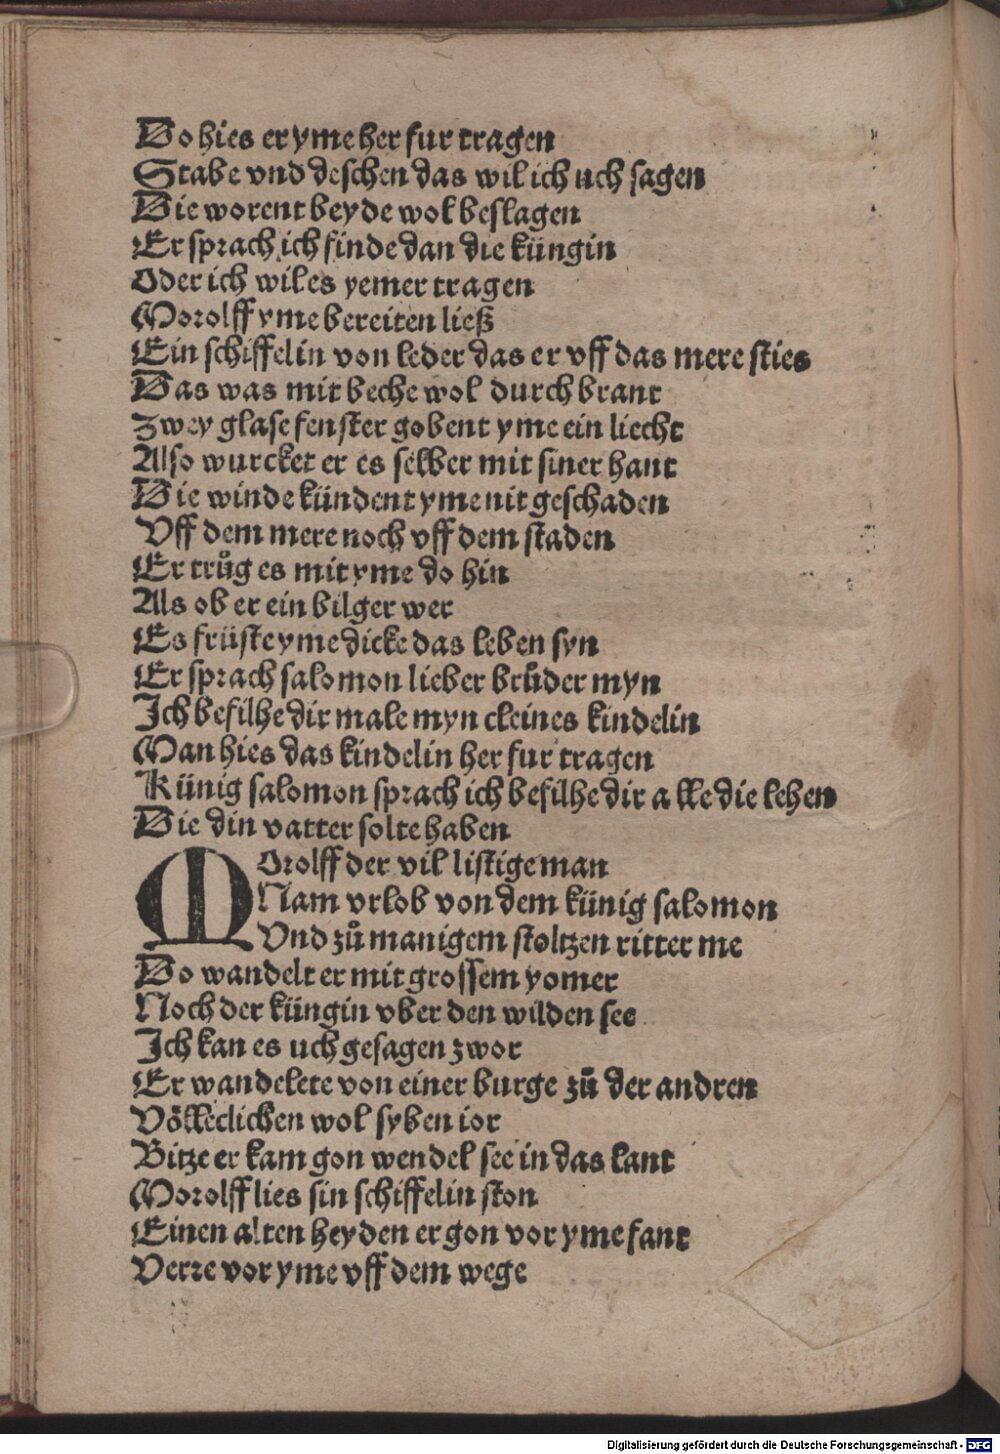 Do hies er yme her fur tragen
Stabe vnd deschen das wil ich uch sagen
Die worent beyde wol beslagen
Er sprach ich finde dan die küngin
Oder ich wil es yemer tragen
Morolff yme bereiten ließ
Ein schiffelin von leder das er vff das mere sties
Das was mit beche wol durch brant
Zwey glase fenster gobent yme ein liecht
Also wurcket er es selber mit siner hant
Die winde kündent yme nit geschaden
Vff dem mere noch vff dem staden
Er trůg es mit yme do hin
Als ob er ein bilger wer
Es früste yme dicke das leben syn
Er sprach salomon lieber brůder myn
Ich befilhe dir male myn cleines kindelin
Man hies das kindelin her fur tragen
Künig salomon sprach ich befilhe dir alle die lehen
Die din vatter solte haben
Morolff der vil listige man
Nam vrlob von dem künig salomon
Vnd zů manigem stoltzen ritter me
Do wandelt er mit grossem yomer
Noch der küngin vber den wilden see
Ich kan es uch gesagen zwor
Er wandelete von einer burge zů der andren
Völleclichen wol syben ior
Bitze er kam gon wendel see in das lant
Morolff lies sin schiffelin ston
Einen alten heyden er gon vor yme fant
Verre vor yme vff dem wege
Digitalisierung gefördert durch die Deutsche Forschungsgemeinschaft - DFG